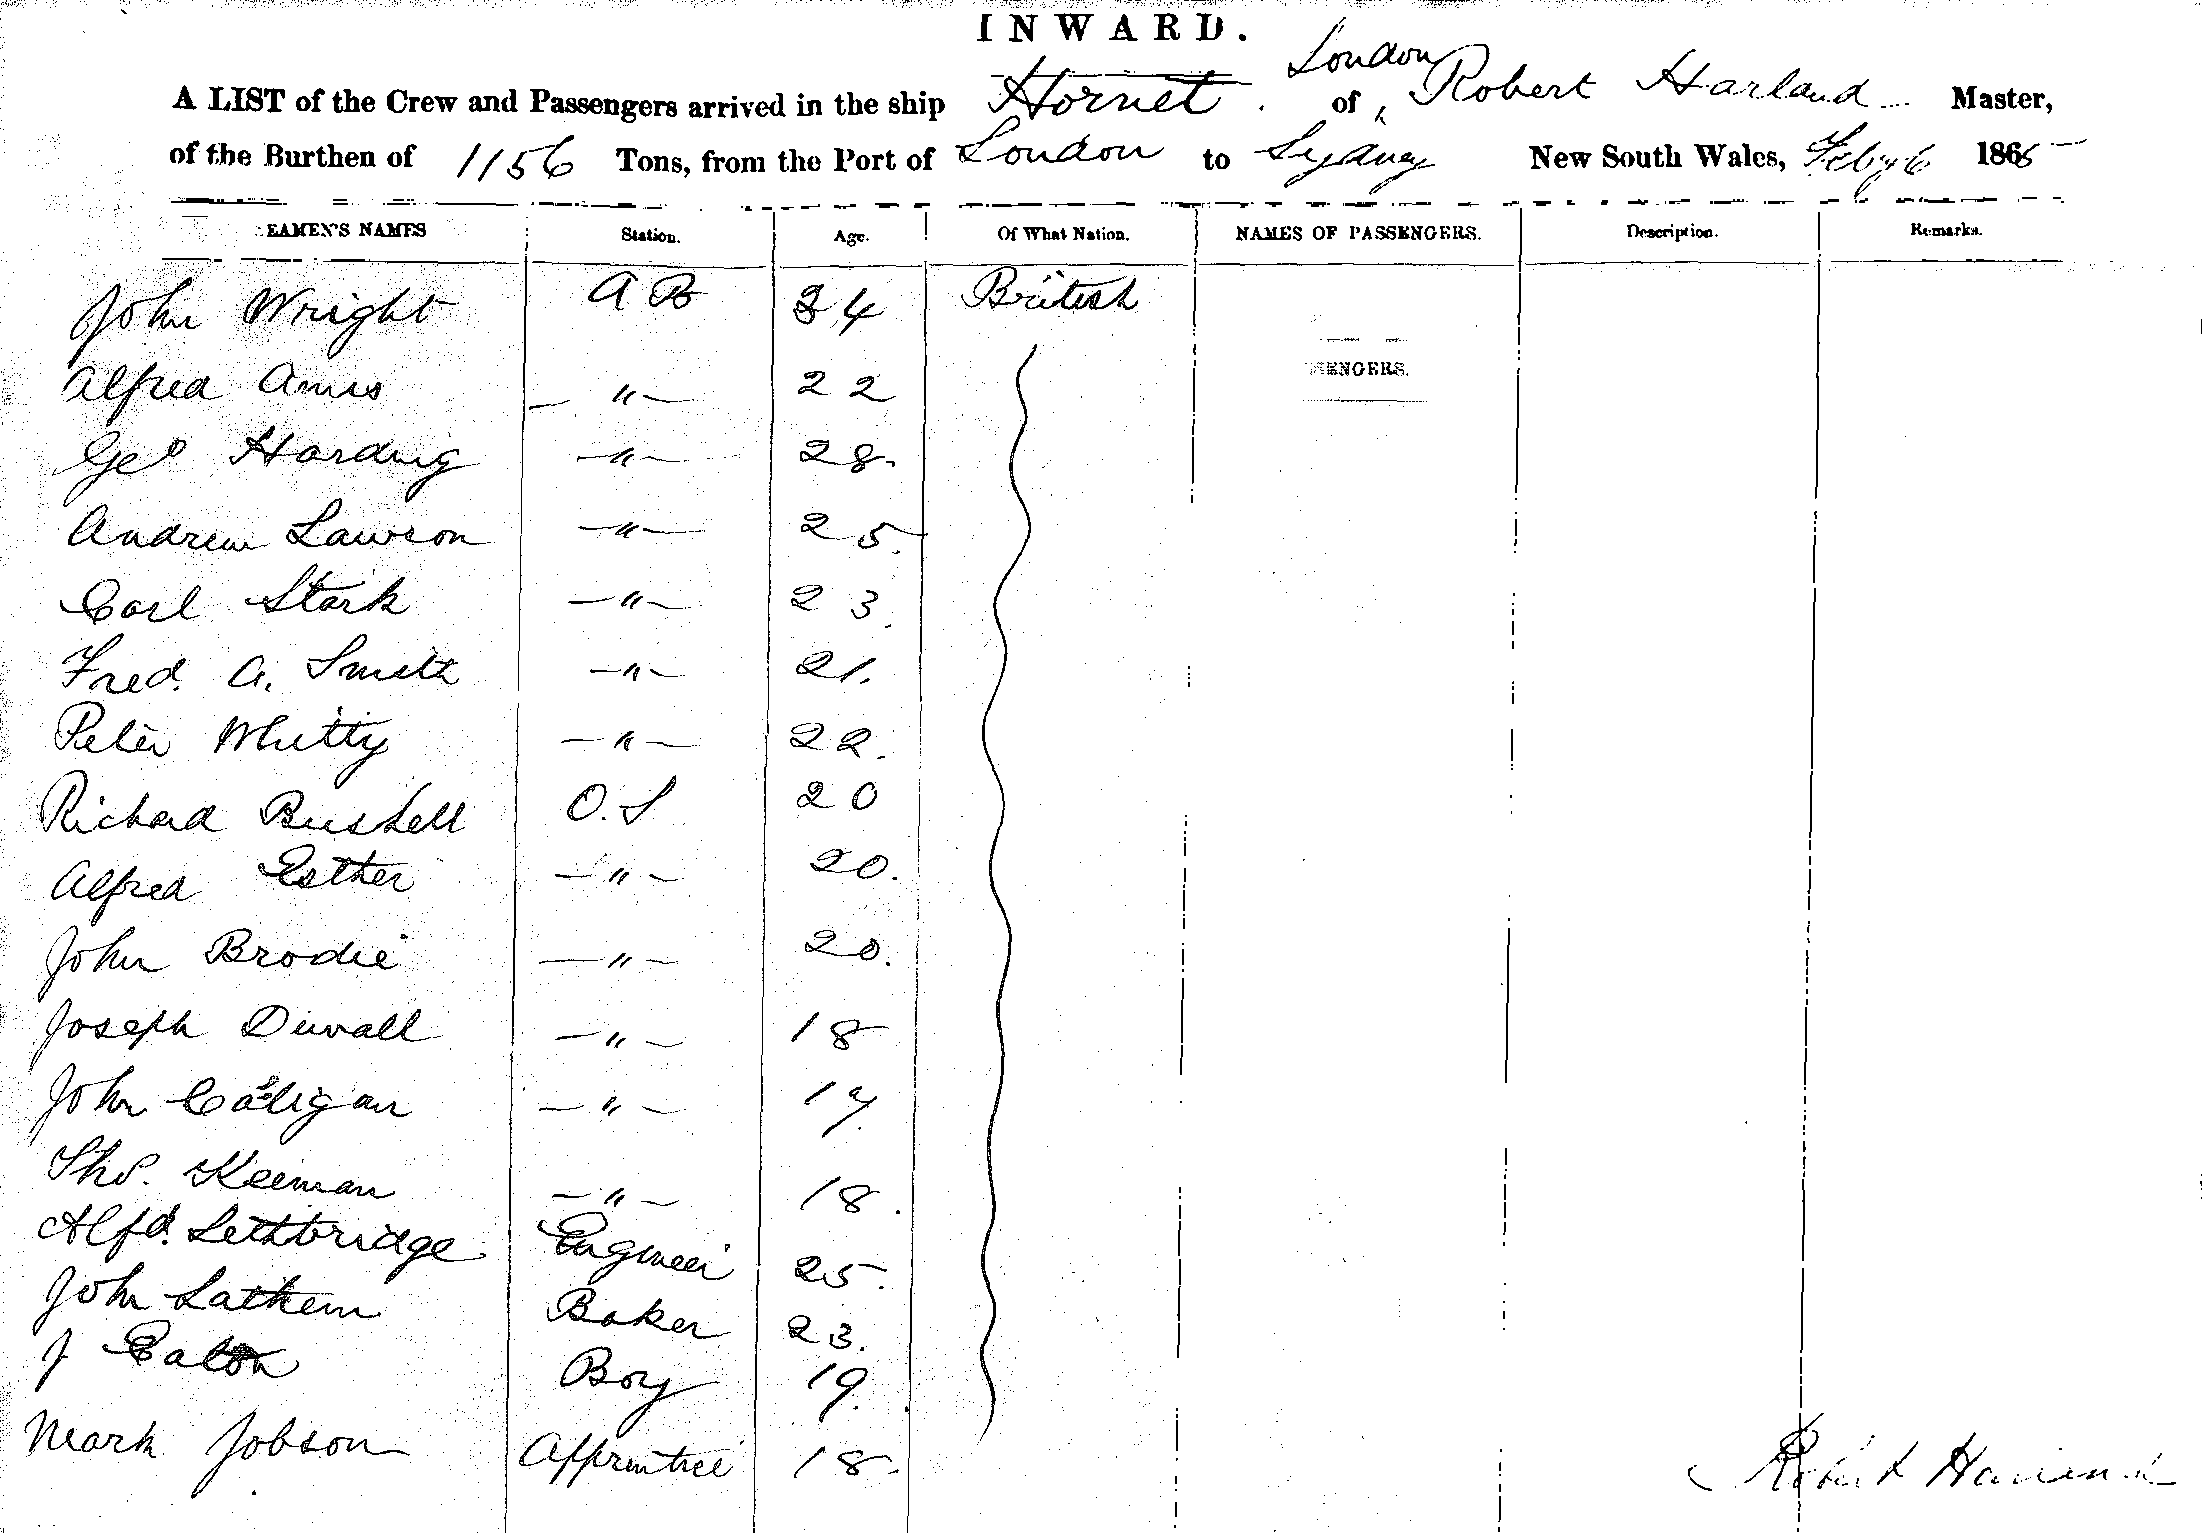 INWARD.
London
A LIST of the Crew and Passengers arrived in the ship Hornet. of Robert Harland Master,
of the Burthen of 1156 Tons, from the Port of London to Sydney New South Wales, Feby 6 1865
EAMEN'S NAMES Station. Age. Of What Nation. NAMES OF PASSENGERS. Description. Remarks.
John Wright A B 34 British
ENGERS.
Alfred Amis — " — 22
Geo Harding — " — 28.
Andrew Lawson — " — 25.
Carl Stark — " — 23.
Fred. A. Smith — " — 21.
Peter Whitty — " — 22.
Richard Bushell O.S 20
Alfred Esther — " — 20.
John Brodie — " — 20.
Joseph Duvall — " — 18
John — " — 17.
Thos. Keeman — " — 18.
Alfd. Lethbridge Engineer 25.
John Lathem Baker 23.
J Eaton Boy 19.
Mark Jobson Apprentice 18.
Robert Harland